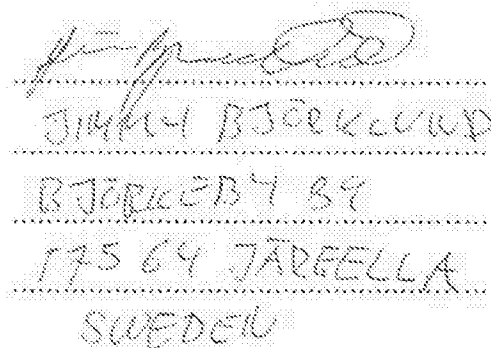 JIMMY BJÖRKLUND
BJÖRKEBY 89
175 64 JÄRFELLA
SWEDEN